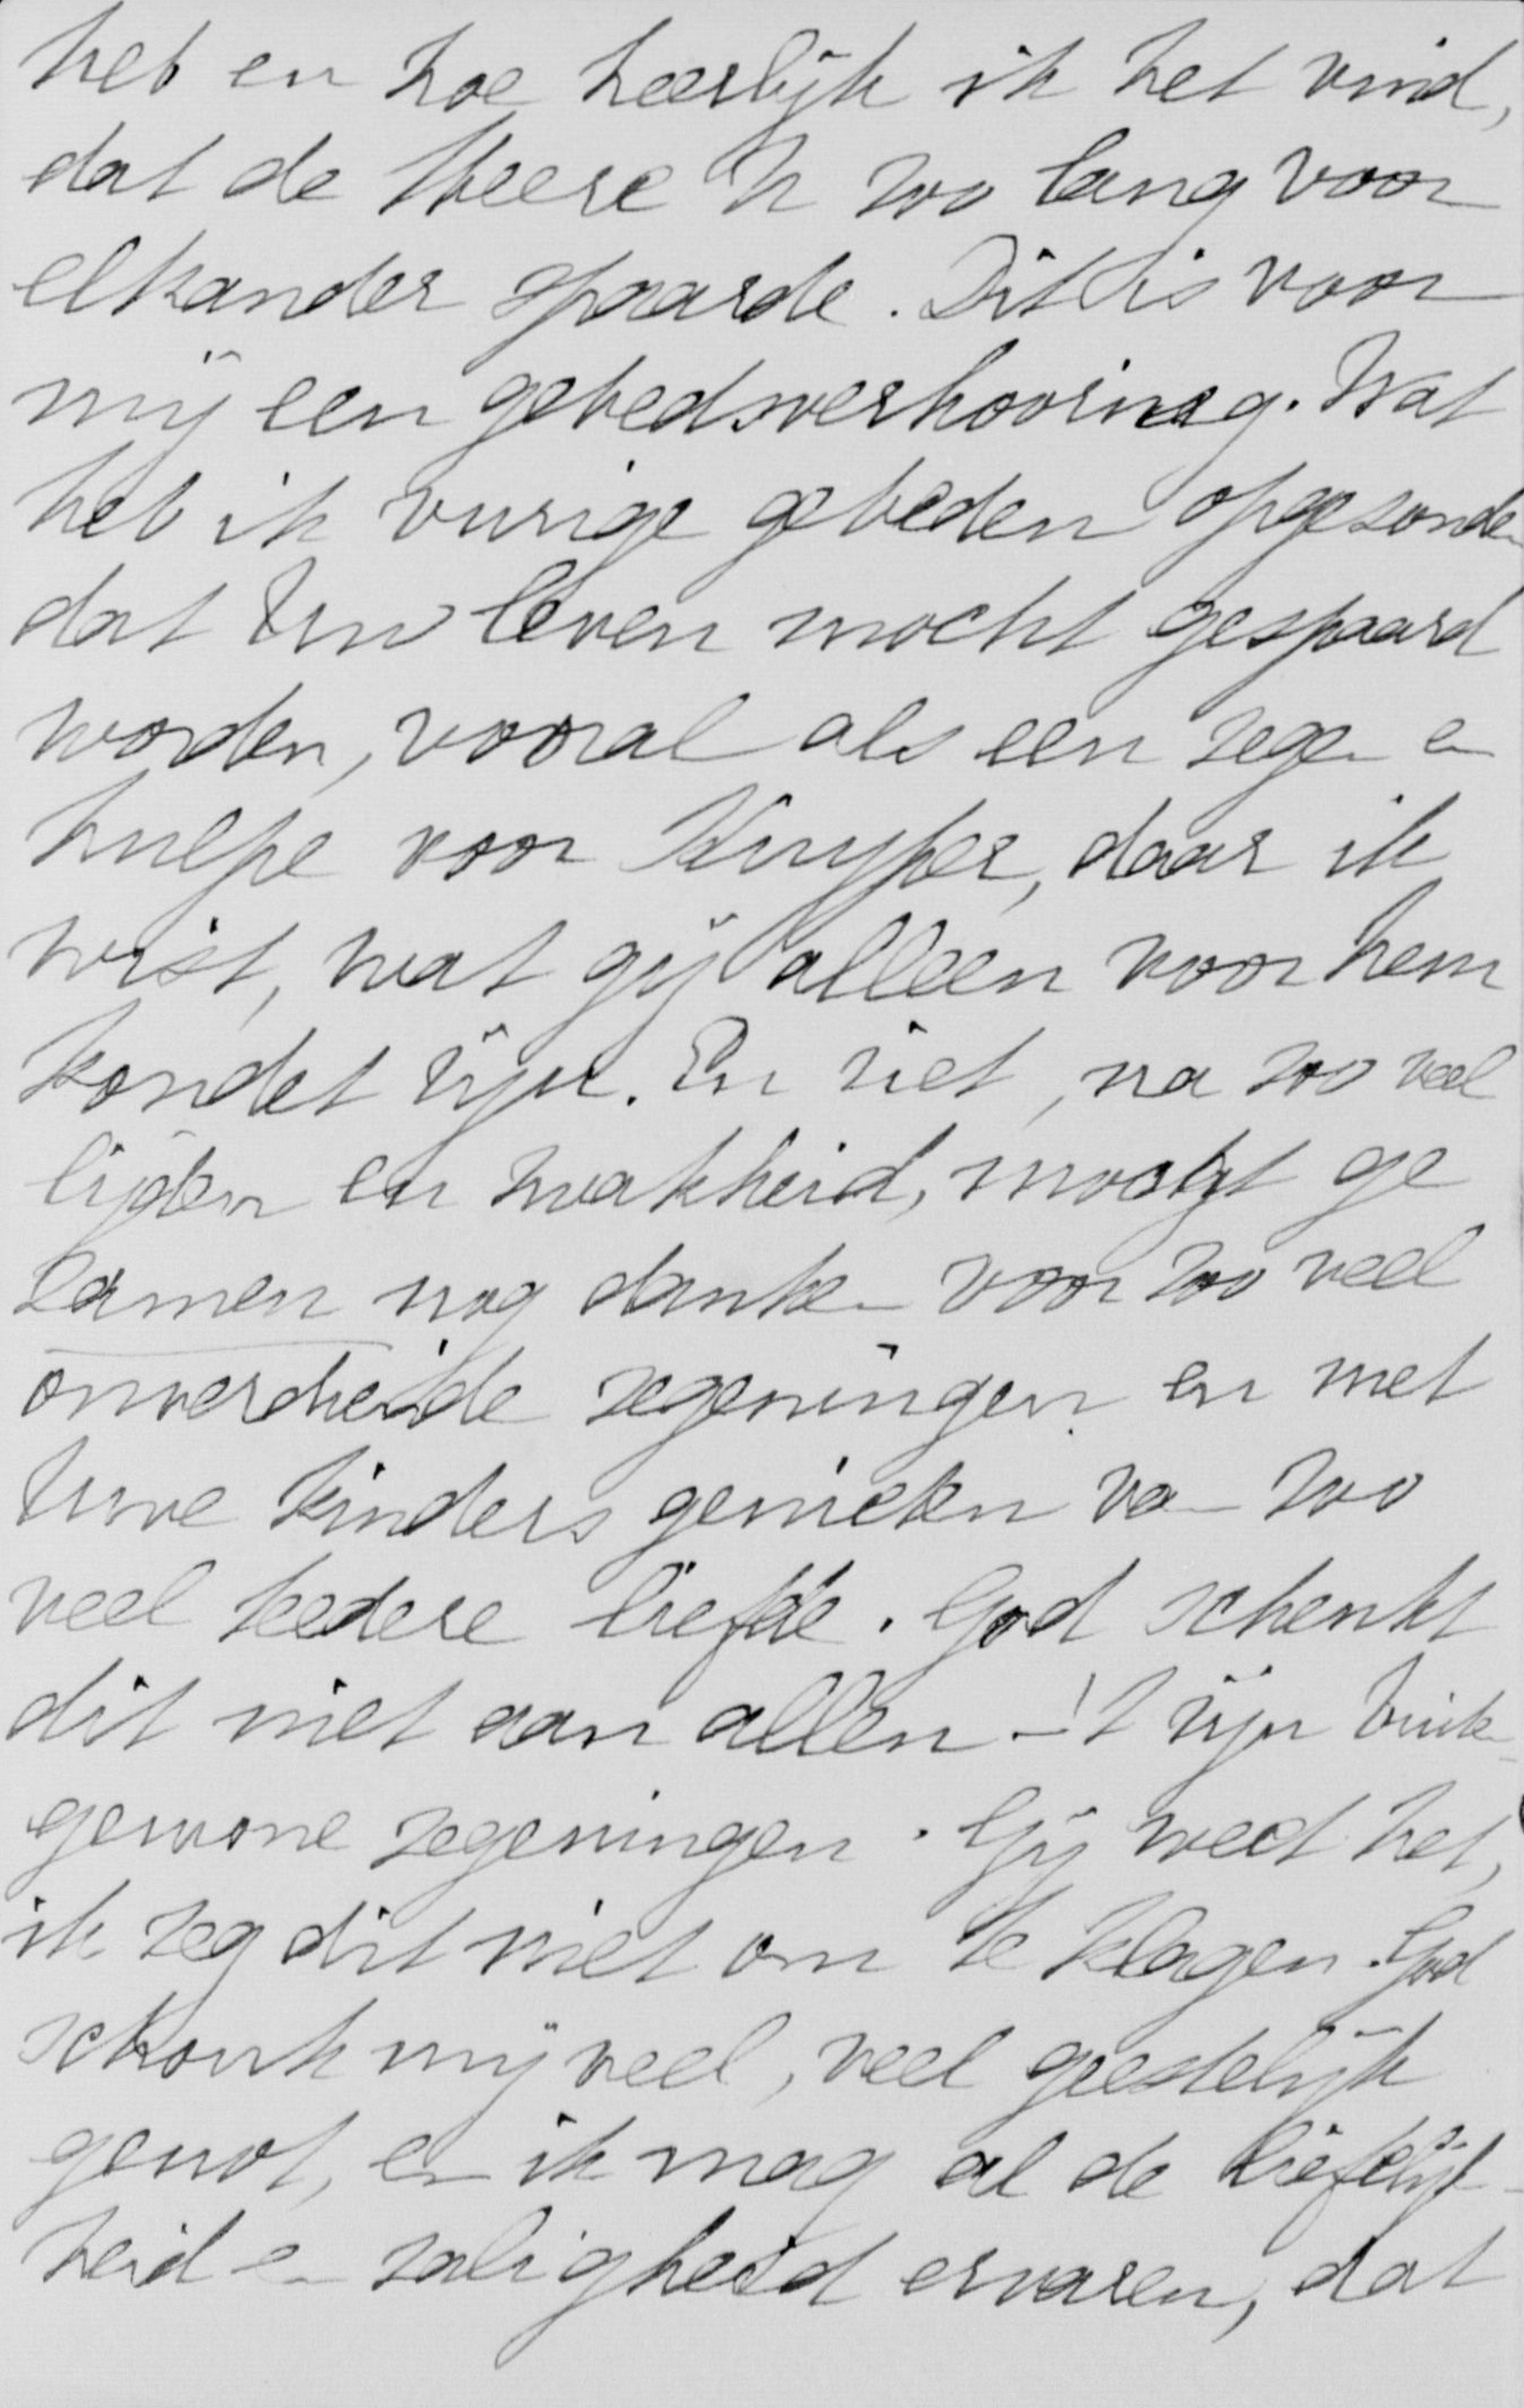 heb en hoe heerlijk ik het vind,
dat de Heere U zoo lang voor
elkander spaarde. Dit is voor
mij een gebedsverhooring. Wat
heb ik vurige gebeden opgezonden
dat Uw leven mocht gespaard
worden, vooral als een zegen en
hulpe voor Kuyper, daar ik
wist, wat gij alleen voor hem
kondet zijn. En ziet, na zoo veel
lijden en zwakheid, moogt ge
samen nog danken voor zoo veel
onverdiende zegeningen en met
Uwe kinders genieten van zoo
veel teedere liefde. God schenkt
dit niet aan allen - 't zijn buiten-
gewone zegeningen. Gij weet het,
ik zeg dit niet om te klagen. God
schonk mij veel, veel geestelijk
genot, en ik mag al de liefelijk-
heid en zaligheid ervaren, dat